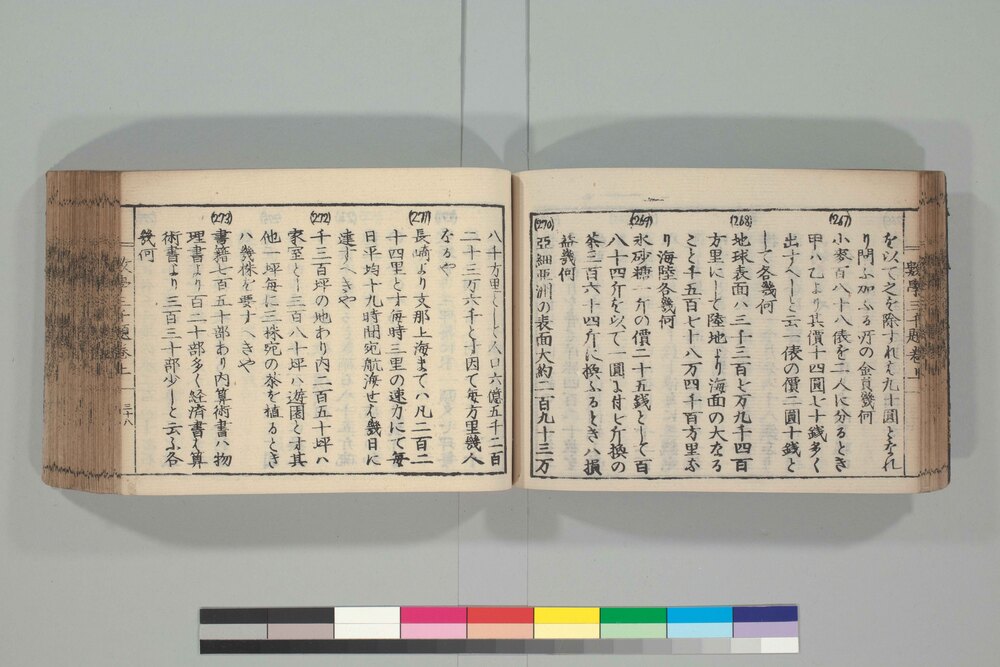 を以て之を除すれは九十圓となれ
り問ふ加ふる所の金員幾何
(267)
小麥百八十八俵を二人に分るとき
甲ハ乙より其價十四圓七十錢多く
出すへしと云一俵の價二圓十錢と
して各幾何
(268)
地球表面ハ三千三百七万九千四百
方里にして陸地より海面の大なる
こと千五百七十八万四千百方里な
り海陸各幾何
(269)
氷砂糖一斤の價二十五錢として百
八十四斤を以て一圓に付七斤換の
茶三百六十四斤に換ふるときハ損
益幾何
(270)
亞細亞洲の表面大約二百九十三万
數學三千題卷上
八千方里にして人口六億五千二百
二十三万六千とす因て每方里幾人
なるや
(271)
長崎より支那上海まてハ凡二百二
十四里とす每時三里の速力にて每
日平均十九時間宛航海せハ幾日に
達すへきや
(272)
千三百坪の地あり内二百五十坪ハ
家室とし三百八十坪ハ遊園とす其
他一坪每に三株宛の茶を植るとき
ハ幾株を要すへきや
(273)
書籍七百五十部あり内算術書ハ物
理書より百二十部多く経済書ハ算
術書より三百三十部少しと云ふ各
幾何
數學三千題卷上
三十八